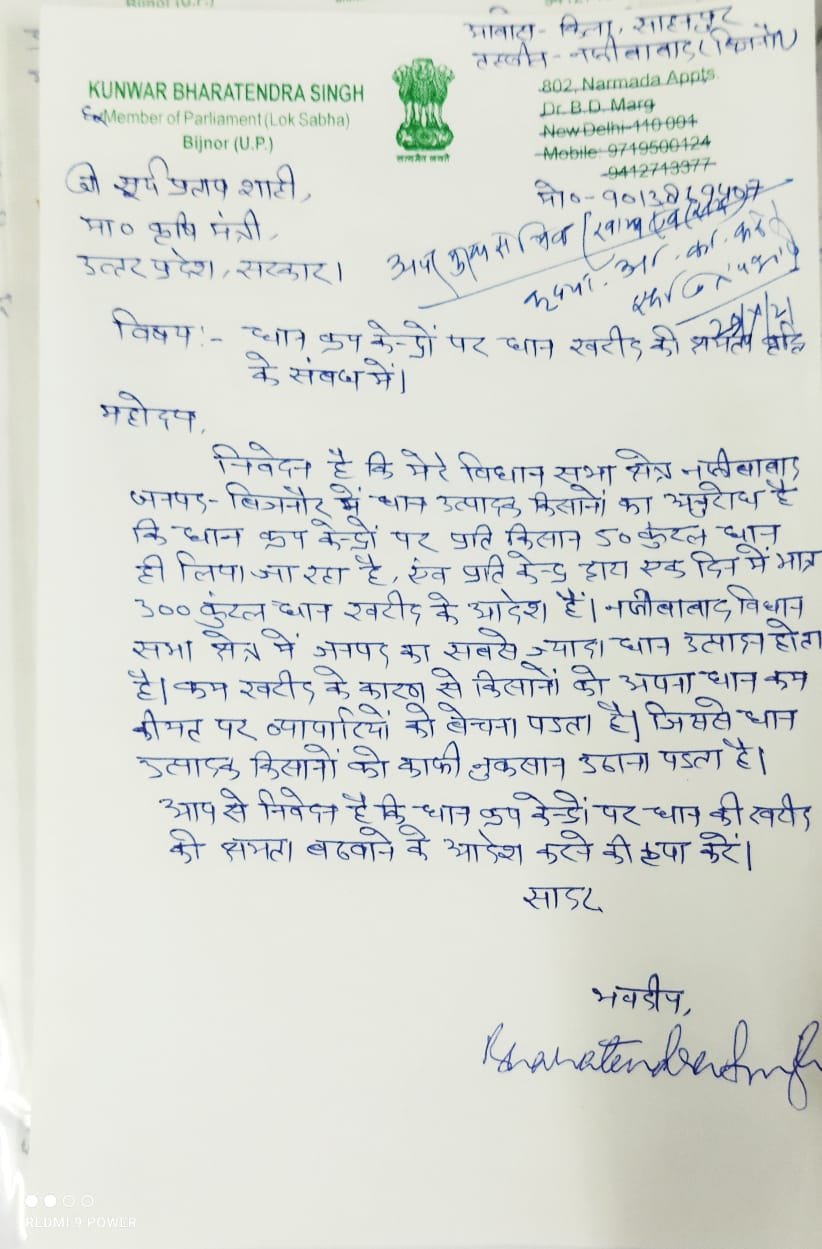 आवास- किला, साहनपुर
तहसील- नजीबाबाद (बिजनौर)
KUNWAR BHARATENDRA SINGH
Ex Member of Parliament (Lok Sabha)
Bijnor (U.P.)
सत्यमेव जयते
802, Narmada Appts.
Dr. B.D. Marg
New Delhi-110 001
Mobile: 9719500124
-9412713377
मो०-
श्री सूर्य प्रताप शाही,
मा० कृषि मंत्री,
उत्तर प्रदेश, सरकार।
अपर मुख्य सचिव
कृपया. आ. का. करें
विषय:- धान क्रय केन्द्रों पर धान खरीद की क्षमता वृद्धि
के संबध में।
महोदय,
निवेदन है कि मेरे विधान सभा क्षेत्र नजीबाबाद
जनपद- बिजनौर में धान उत्पादक किसानों का अनुरोध है
कि धान क्रय केन्द्रों पर प्रति किसान 50 कुंटल धान
ही लिया जा रहा है, एंव प्रति केन्द्र द्वारा एक दिन में मात्र
300 कुंटल धान खरीद के आदेश हैं। नजीबाबाद विधान
सभा क्षेत्र में जनपद का सबसे ज्यादा धान उत्पादन होता
है। कम खरीद के कारण से किसानों को अपना धान कम
कीमत पर व्यापारियों को बेचना पडता है। जिससे धान
उत्पादक किसानों को काफी नुकसान उठाना पडता है।
आप से निवेदन है कि धान क्रय केन्द्रों पर धान की खरीद
की क्षमता बढवाने के आदेश करने की कृपा करें।
सादर
भवदीय,
Bharatendra Singh
REDMI 9 POWER